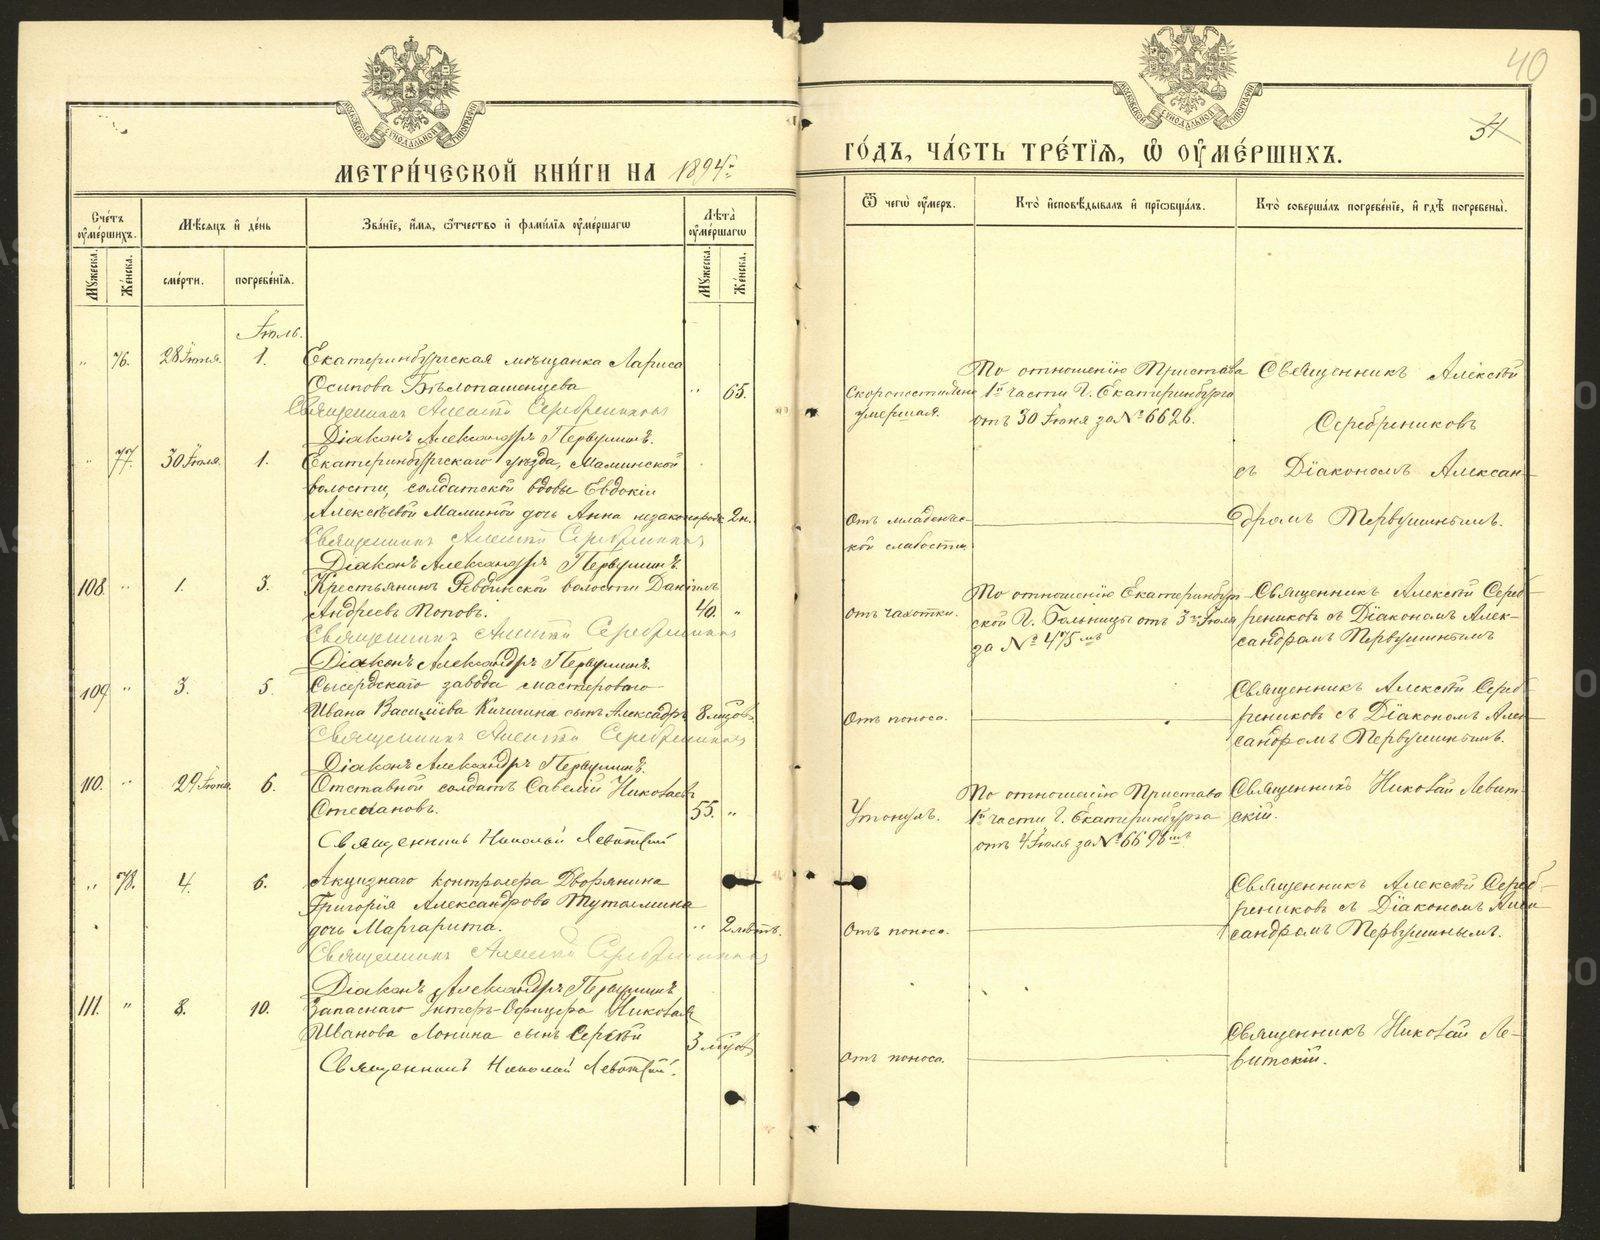 40
31
МЕТРИ́ЧЕСКОЙ КНИ́ГИ НА 1894 г.
ГО́ДЪ, ЧА́СТЬ ТРЕ́ТІѦ, Ѡ҆ ОУ҆МЕ́РШИХЪ.
Сче́тъ оу҆ме́ршихъ.
Мѣ́сяцъ и҆ де́нь
Зва́нїе, и҆́мя, ѻ҆́тчество и҆ фами́лїя оу҆ме́ршагѡ
Лѣ́та оу҆ме́ршагѡ
Ѿ чегѡ̀ оу҆́меръ.
Кто̀ и҆сповѣ́дывалъ и҆ прїѡбща́лъ.
Кто̀ соверша́лъ погребе́нїе, и҆ гдѣ̀ погребены̀.
Мꙋ́жеска.
Же́нска.
сме́рти.
погребе́нїя.
Мꙋ́жеска.
Же́нска.
Іюль.
" 76. 28 Іюня. 1. Екатеринбургская мѣщанка Лариса
Осипова Бѣлопашенцева " 65.
Священникъ Алексій Серебрениковъ
Діаконъ Александръ Первушинъ.
Скоропостижно
умершая.
По отношенію Пристава
1й части Г. Екатеринбурга
отъ 30 Іюня за № 6626.
Священникъ Алексѣй
Серебрениковъ
съ Діакономъ Алексан-
дромъ Первушинымъ.
" 77. 30 Іюля. 1. Екатеринбургскаго уѣзда, Маминской
волости, солдатской вдовы Евдокіи
Алексѣевой Маминой дочь Анна незаконорожд. 2 н.
Священникъ Алексій Серебрениковъ
Діаконъ Александръ Первушинъ.
Отъ младенчес-
кой слабости
108 " 1. 3. Крестьянинъ Ревдинской волости Даніилъ
Андреевъ Поповъ. 40. "
Священникъ Алексій Серебрениковъ
Діаконъ Александръ Первушинъ.
отъ чахотки.
По отношенію Екатеринбург-
ской Г. Больницы отъ 3го Іюля
за № 475мъ
Священникъ Алексѣй Сереб-
рениковъ съ Діакономъ Алек-
сандромъ Первушинымъ
109 " 3. 5. Сысердскаго завода мастероваго
Ивана Васильева Кичигина сынъ Александръ 8 мѣсяцовъ
Священникъ Алексій Серебрениковъ
Діаконъ Александръ Первушинъ.
Отъ поноса.
Священникъ Алексѣй Сереб-
рениковъ съ Діакономъ Алек-
сандромъ Первушинымъ.
110. " 29 Іюня. 6. Отставной солдатъ Савелій Николаевъ
Степановъ. 55. "
Священникъ Николай Левитскій
Утонулъ.
По отношенію Пристава
1й части Г. Екатеринбурга
отъ 4 Іюля за № 6698мъ
Священникъ Николай Левит-
скій.
" 78. 4. 6. Акцизнаго контролера Дворянина
Григорія Александрова Тутолмина
дочь Маргарита. " 2 лѣтъ.
Священникъ Алексій Серебрениковъ
Діаконъ Александръ Первушинъ
Отъ поноса.
Священникъ Алексѣй Сереб-
рениковъ съ Діакономъ Алек-
сандромъ Первушинымъ.
111. " 8. 10. Запаснаго Унтеръ-Офицера Николая
Иванова Лонина сынъ Сергѣй 3 мѣсяцовъ
Священникъ Николай Левитскій.
Отъ поноса.
Священникъ Николай Ле-
витскій.